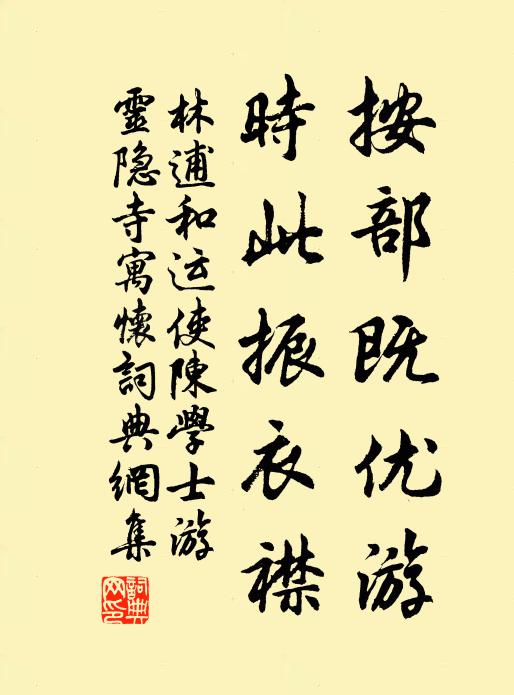 按部既优游
時此振衣襟
林逋和运使陳學士游
靈隐寺寓懷詞典網集
詞典网印